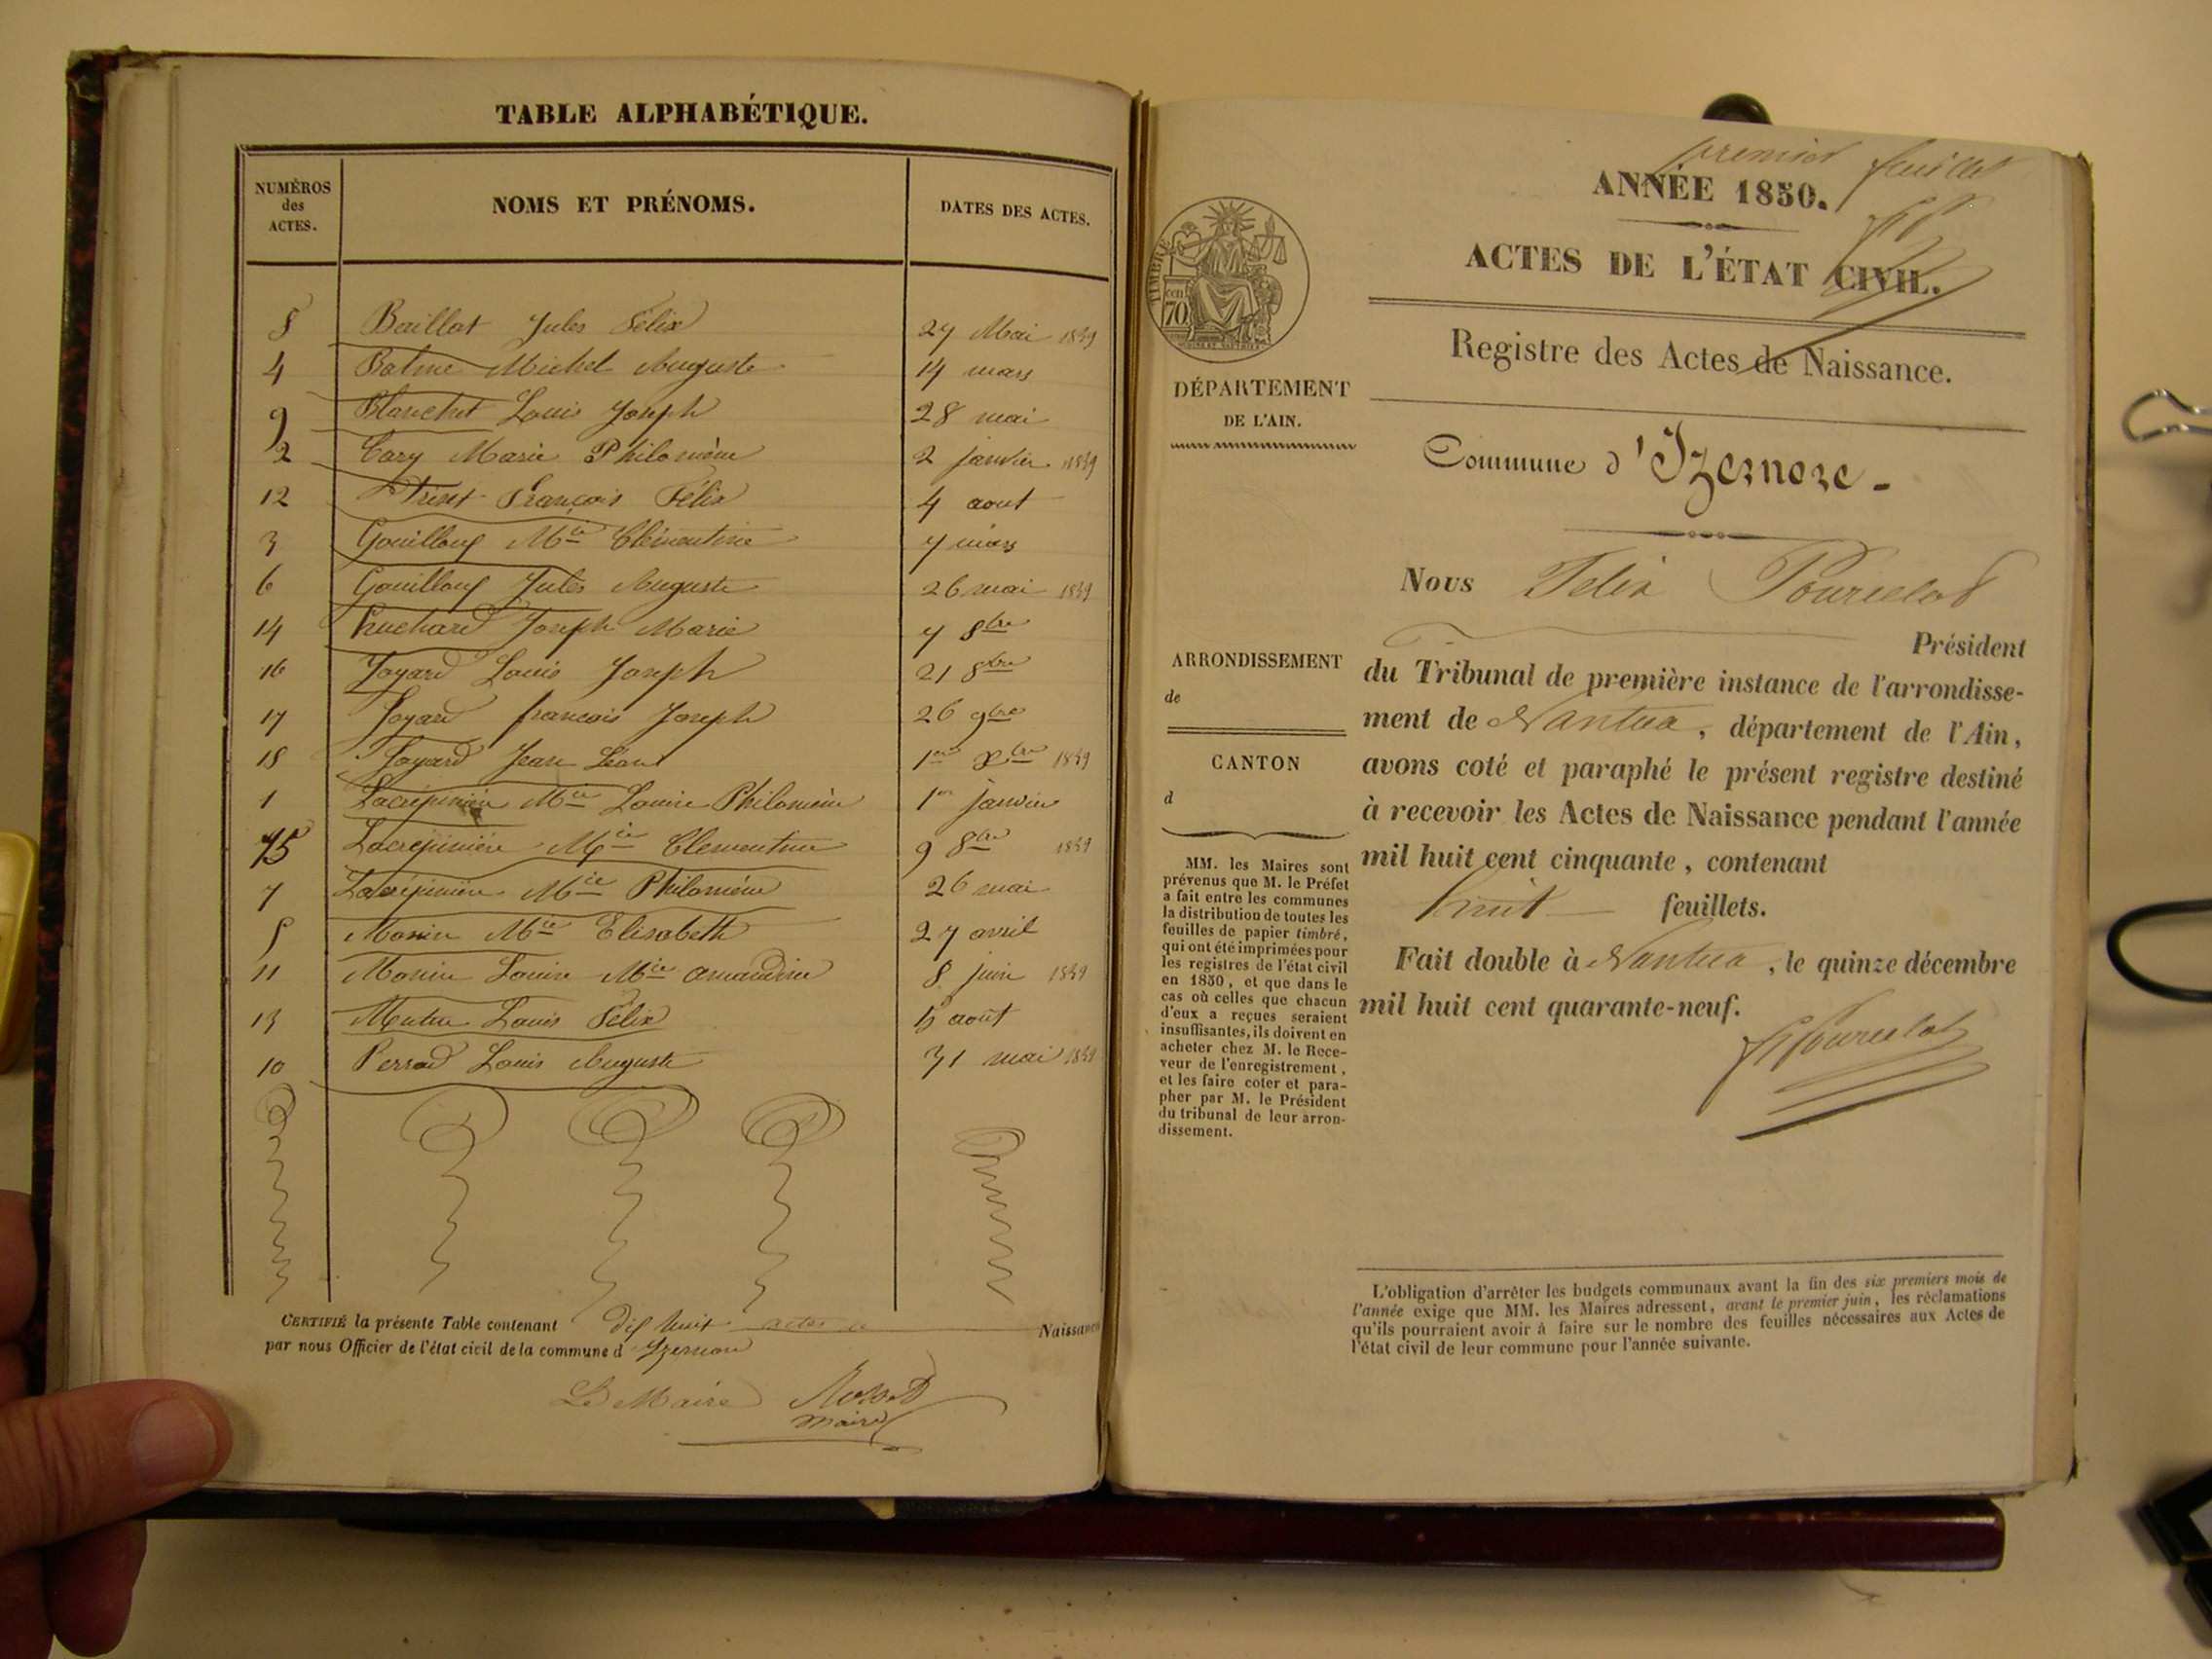 TABLE ALPHABÉTIQUE.
NUMÉROS des ACTES. NOMS ET PRÉNOMS. DATES DES ACTES.
8 Baillat Jules Félix 27 Mai 1849
4 Balme Michel Auguste 14 mars
9 Blanchet Louis Joseph 28 mai
2 Cary Marie Philomène 2 janvier 1849
12 François Félix 4 aout
3 Gouilloux Mie Clémentine 7 mars
6 Gouilloux Jules Auguste 26 mai 1849
14 Huchard Joseph Marie 7 8bre
16 Joyard Louis Joseph 21 8bre
17 Joyard francois Joseph 26 9bre
18 Joyard Jean Léon 1er Xbre 1849
1 Lacrépinière Mie Louise Philomène 1er janvier
15 Lacrépinière Mie Clementine 9 8bre 1849
7 Lacrépinière Mie Philomène 26 mai
5 Monin Mie Elisabeth 27 avril
11 Monin Louise Mie amandine 8 juin 1849
13 Louis Félix août
10 Perrod Louis Auguste 31 mai 1849
CERTIFIÉ la présente Table contenant dix huit actes de Naissance
par nous Officier de l'état civil de la commune d Izernore
Le Maire
maire
premier feuillet
ANNÉE 1850.
ACTES DE L'ÉTAT CIVIL.
TIMBRE
cen
70
Registre des Actes de Naissance.
DÉPARTEMENT
DE L'AIN.
Commune d'Izernore.
Nous Félix Pourcelot
Président
ARRONDISSEMENT
de
du Tribunal de première instance de l'arrondisse-
ment de Nantua, département de l'Ain,
CANTON
d
avons coté et paraphé le présent registre destiné
à recevoir les Actes de Naissance pendant l'année
mil huit cent cinquante, contenant
huit feuillets.
Fait double à Nantua, le quinze décembre
mil huit cent quarante-neuf.
Pourcelot
MM. les Maires sont
prévenus que M. le Préfet
a fait entre les communes
la distribution de toutes les
feuilles de papier timbré,
qui ont été imprimées pour
les registres de l'état civil
en 1850, et que dans le
cas où celles que chacun
d'eux a reçues seraient
insuffisantes, ils doivent en
acheter chez M. le Rece-
veur de l'enregistrement,
et les faire coter et para-
pher par M. le Président
du tribunal de leur arron-
dissement.
L'obligation d'arrêter les budgets communaux avant la fin des six premiers mois de
l'année exige que MM. les Maires adressent, avant le premier juin, les réclamations
qu'ils pourraient avoir à faire sur le nombre des feuilles nécessaires aux Actes de
l'état civil de leur commune pour l'année suivante.